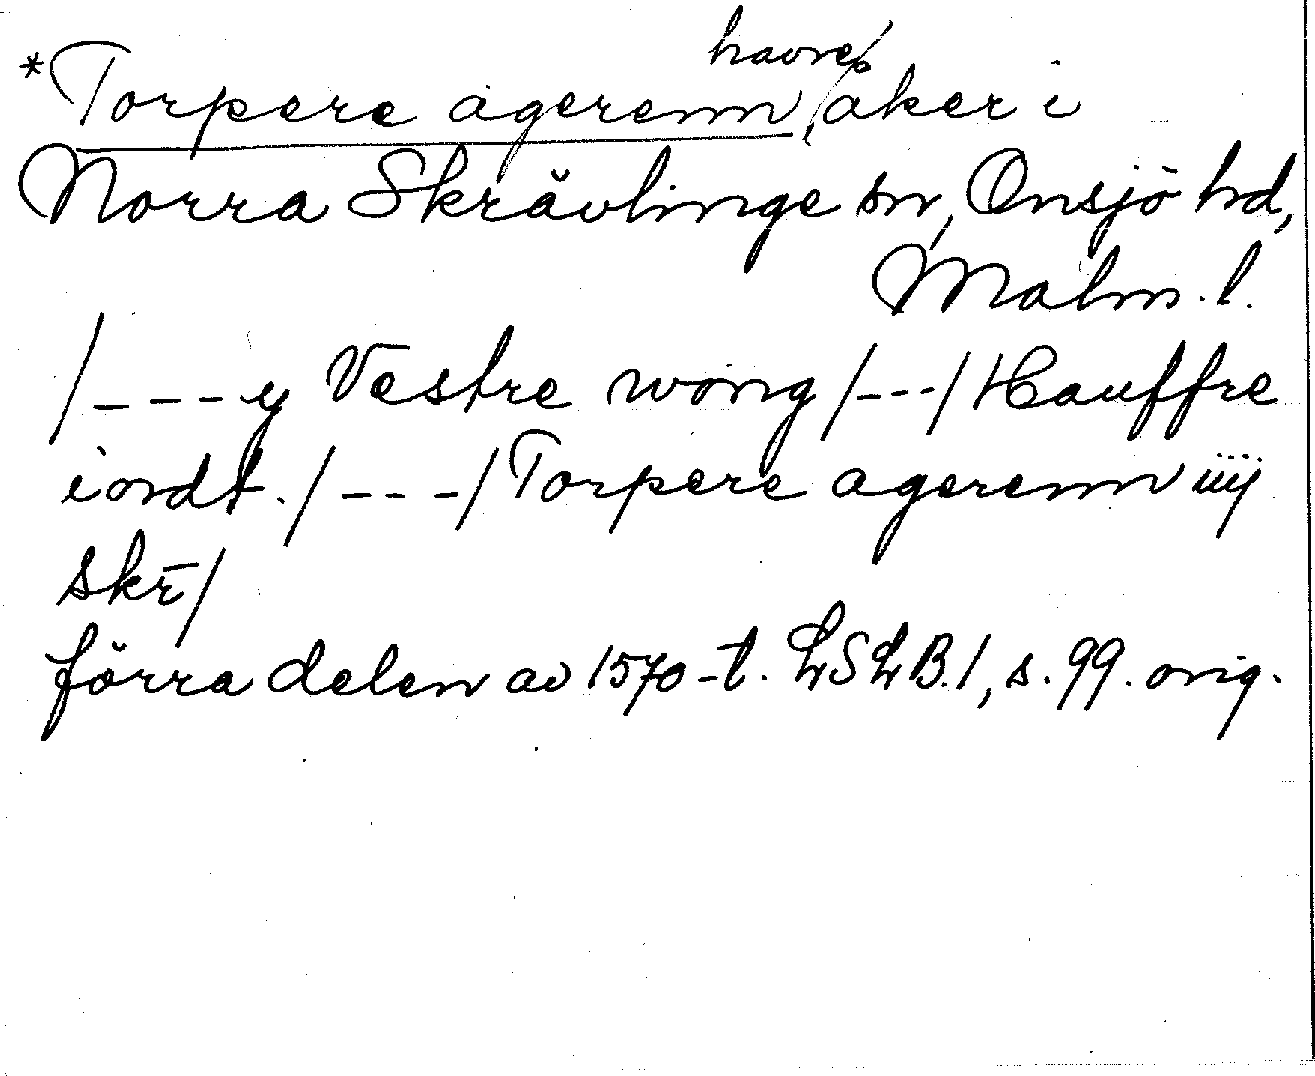 *Torpere agerenn, havreåker i
Norra Skrävlinge sn, Onsjö hd,
Malm. l.
/---y Vestre wong /---/ Hauffre
iordt. /---/ Torpere agerenn iiij
skr̄/
förra delen av 1570-t. LSLB.1, s. 99. orig.